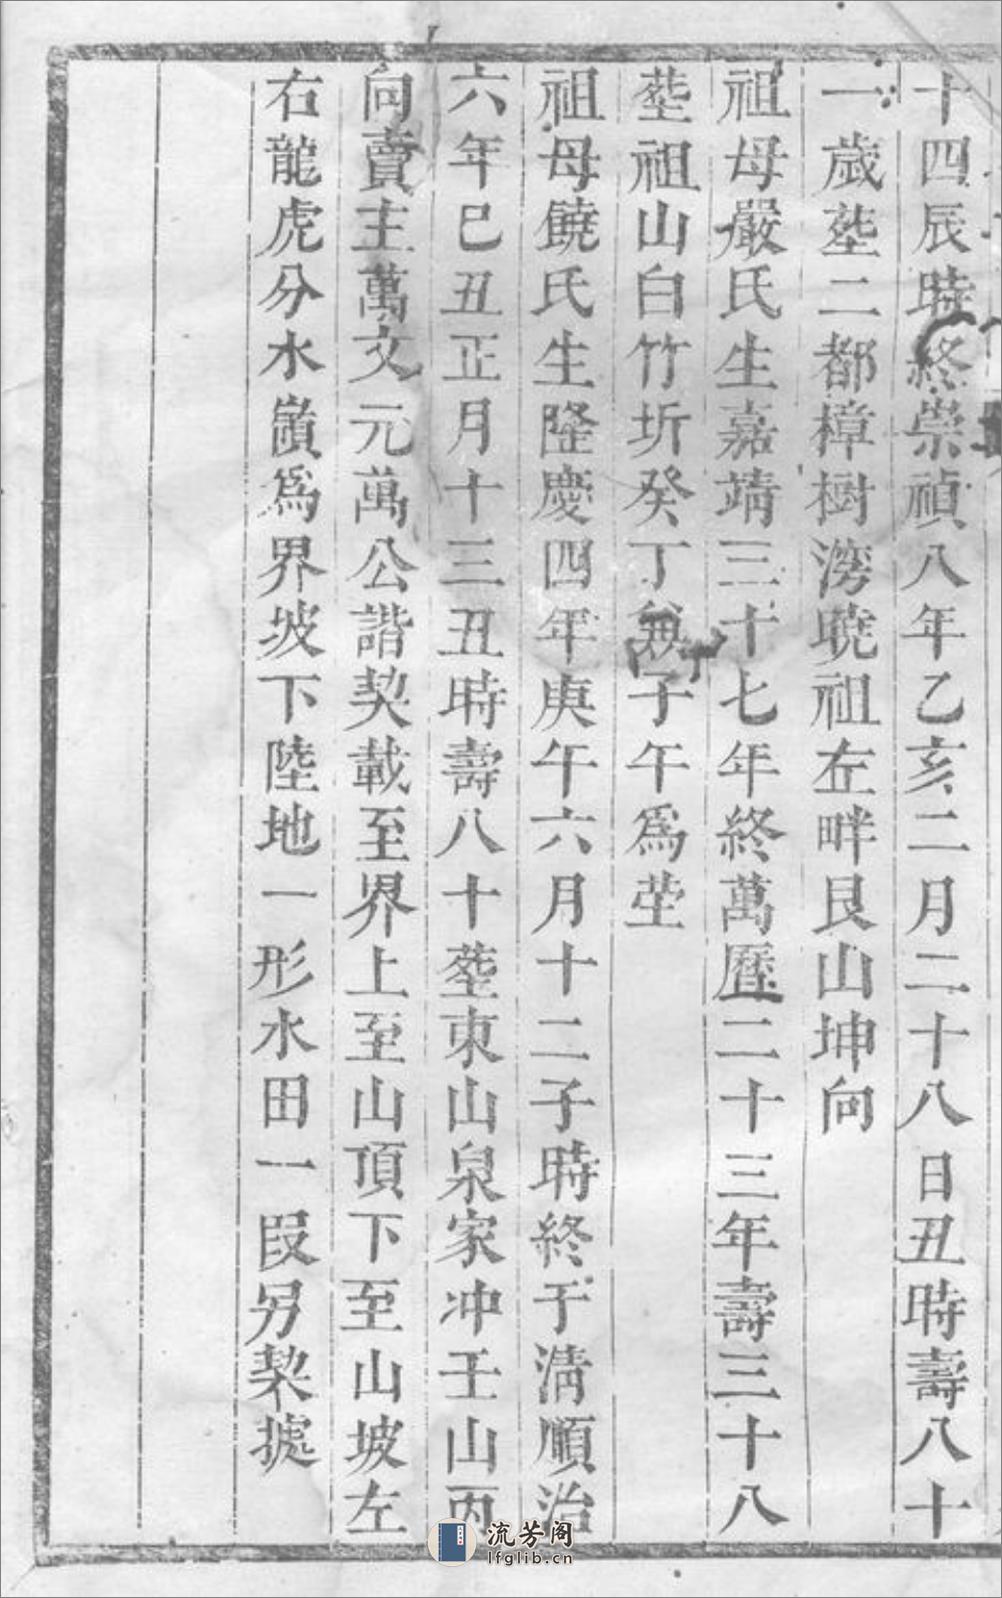 十四辰時終崇禎八年乙亥二月二十八日丑時壽八十
一歲塟二都樟樹澇曉祖左畔艮山坤向
祖母嚴氏生嘉靖三十七年終萬曆二十三年壽三十八
塟祖山白竹坼癸丁兼子午爲塋
祖母饒氏生隆慶四年庚午六月十二子時終于淸順治
六年巳丑正月十三丑時壽八十塟東山泉家冲壬山丙
向賣主萬文元萬公諧契載至界上至山頂下至山坡左
右龍虎分水嶺爲界坡下陸地一形水田一段另契據
流芳阁
lfglib.cn